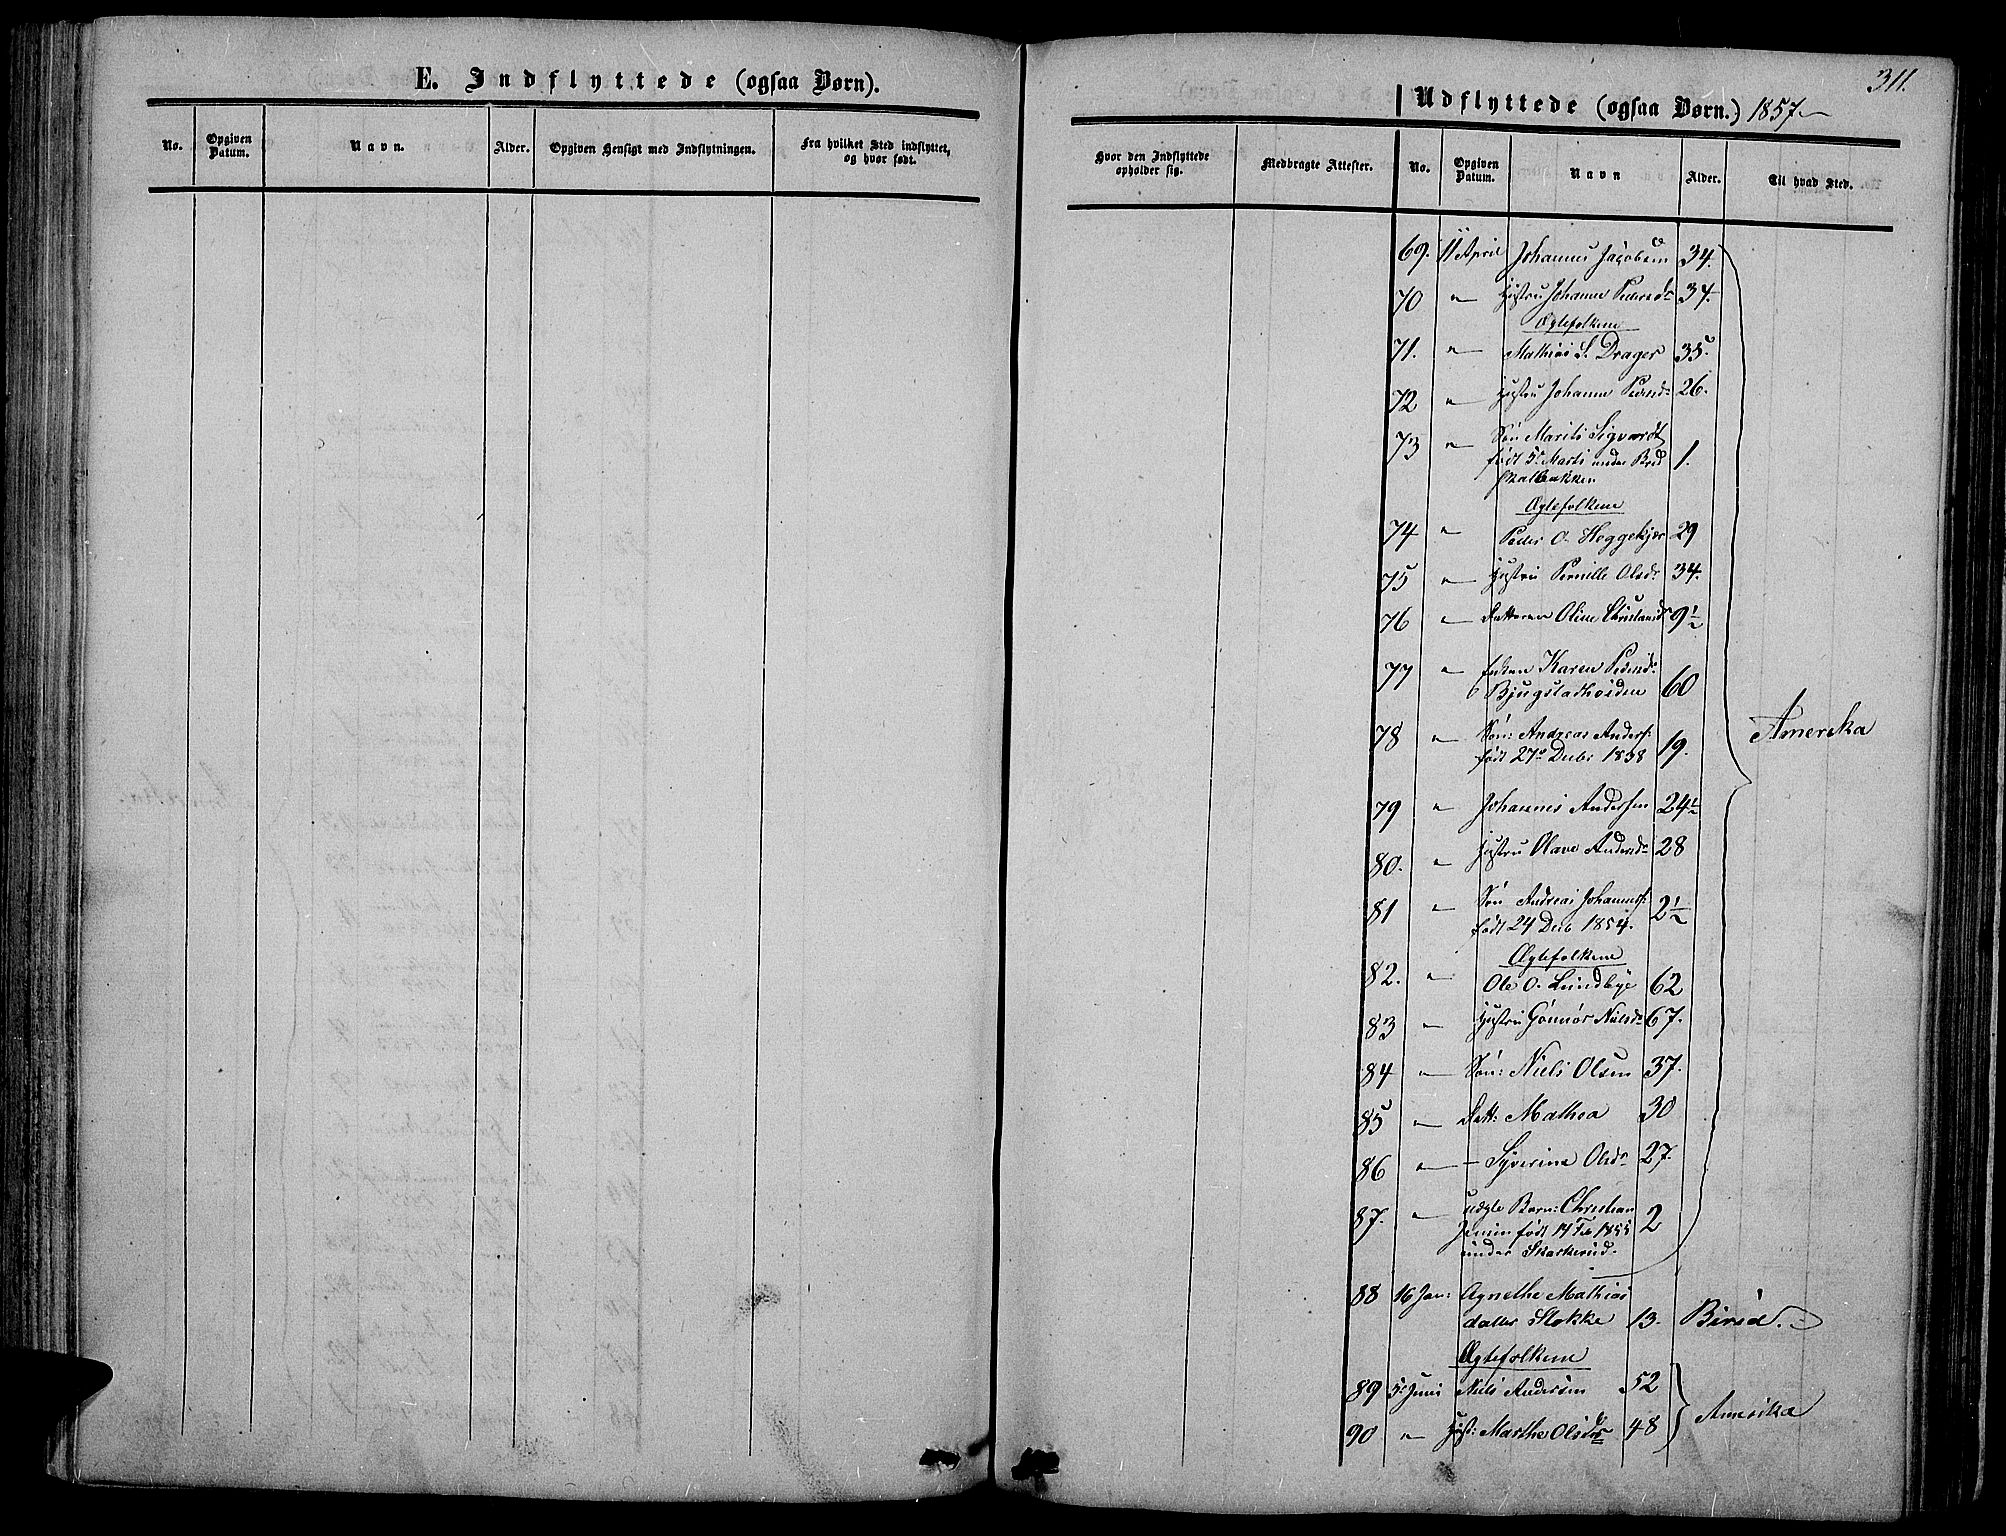 311.
E. Indflyttede (ogsaa Børn).
No.
Opgiven Datum.
Navn.
Alder.
Opgiven Hensigt med Indflytningen.
Fra hvilket Sted indflyttet, og hvor født.
Udflyttede (ogsaa Børn.) 1857
Hvor den Indflyttede opholder sig.
Medbragte Attester.
No.
Opgiven Datum.
Navn
Alder.
Til hvad Sted.
69. 11 April Johannes Jacobsen 34.
70 " Hustru Johanne Pedersdr 34.
Ægtefolkene
71. " Mathias S. Drager 35.
72 " Hustru Johanne Pedersdr 26.
73 " Søn Marits Sigvardt
født 5te Marts under Birid
Skalbakken 1.
Ægtefolkene
74 " Peder O. Heggekjær 29
75 " Hustru Pernille Olsdr 34.
76 " Datteren Oline Christiansdr 9½
77 " Enken Karen Pedersdr
Bjugstadhøiden 60
78 " Søn: Andreas Anders:
født 27de Decbr 1838 19.
Amerika
79 " Johannes Andersen 24½
80. " Hustru Olave Andersdr 28
81 " Søn Andreas Johannes:
født 24 Decb 1854. 2½
Ægtefolkene
82. " Ole O. Lundbye 62
83 " Hustru Gønnør Nielsdr 67.
84 " Søn: Niels Olsen 37.
85 " Datt: Mathea 30
86 " — Syverine Olsdr 27.
87. " uægte Barn: Christian
Jensen født 14 Feb 1855
under Skarkerud. 2
88 16 Jan: Agnethe Mathias
datter Stokke 13. Birid.
Ægtefolkene
89 5te Juni Niels Andersen 52
90 " Hust: Marthe Olsdr 48 Amerika